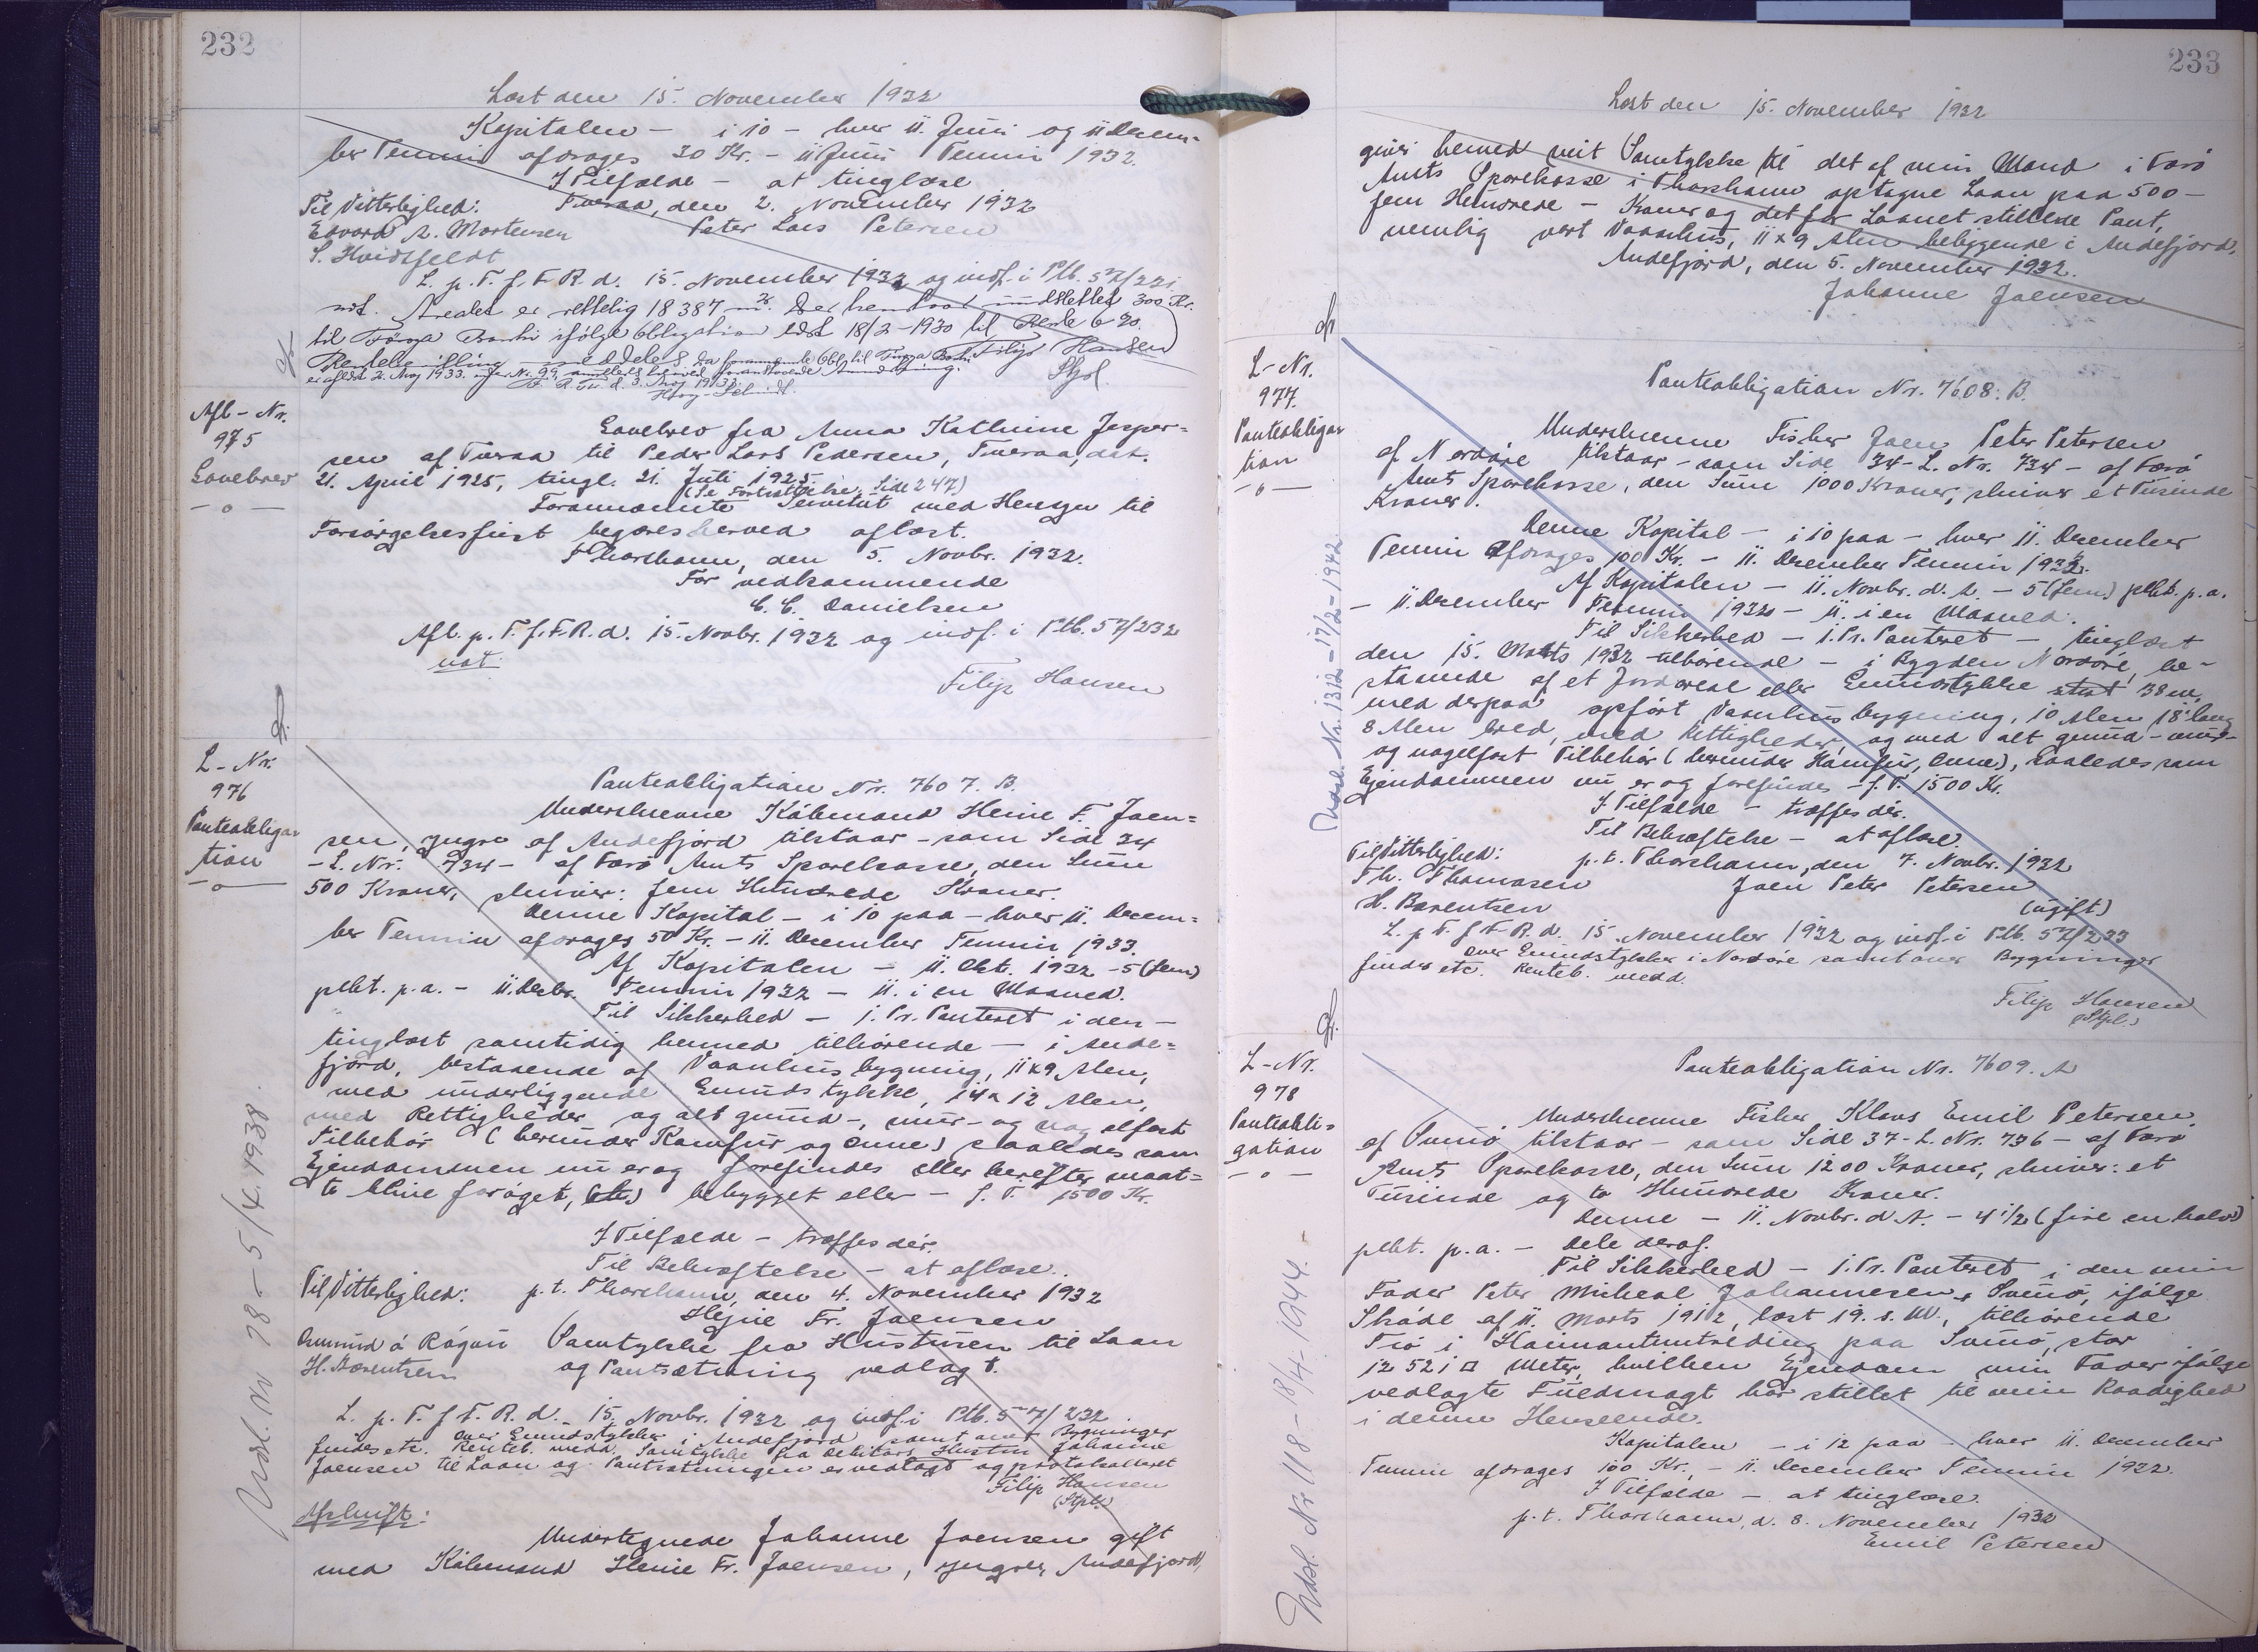 232
Læst den 15. November 1932
Kapitalen – i 10 – hver 11. Juni og 11 Decem-
ber Termin afdrages 30 Kr. – 11 Juni Termin 1932.
I Tilfælde – at tinglæse
Til Vitterlighed: Tveraa, den 2. November 1932
Edvard A. Mortensen Peter Lars Petersen
S. Hvidtfeldt
L. p. T. f. F. R. d. 15. November 1932 og indf. i Ptb. 57/231
not. Arealet er rettelig 18387 m². Der henstaar 300 Kr.
til Føroya Banki ifølge Obligation læst 18/2-1930 til Rente 6 %.
Filip Hansen
Stpl.
Afl-Nr.
975
Lovebrev
Lovebrev fra Anna Kathrine Jesper=
sen af Tveraa til Peder Lars Pedersen, Tveraa, dat.
21. April 1925, tingl. 21. Juli 1925.
(Se Fortsættelse Side 247)
Forannævnte Servitut med Hensyn til
Forsørgelsespligt begæres herved aflæst.
Thorshavn, den 5. Novbr. 1932.
For vedkommende
C. C. Danielsen
Afl. p. T. f. F. R. d. 15. Novbr. 1932 og indf. i Ptb. 57/232
not.
Filip Hansen
L-Nr.
976
Panteobliga-
tion
Panteobligation Nr. 7607. B.
Underskrevne Købmand Heine F. Joen=
sen, yngre af Andefjord tilstaar – som Side 34
– L. Nr. 734 – af Færø Amts Sparekasse, den Sum
500 Kroner, skriver: fem Hundrede Kroner.
Denne Kapital – i 10 paa – hver 11. Decem=
ber Termin afdrages 50 Kr. – 11. December Termin 1933.
Af Kapitalen – 11. Okt. 1932 – 5 (fem)
pCt. p. a. – 11. Decbr. Termin 1932 – 11. i en Maaned.
Til Sikkerhed – 1. Pr. Panteret i den –
tinglæst samtidig hermed tilhørende – i Ande=
fjord, bestaaende af Vaanhusbygning, 11x9 Alen,
med underliggende Grundstykke, 14x12 Alen,
med Rettigheder og alt grund-, mur- og nagelfast
Tilbehør (herunder Komfur og Ovne) saaledes som
Ejendommen nu er og forefindes eller herefter maat=
te blive forøget, (etc) bebygget eller – f. T. 1500 Kr.
I Tilfælde – træffes dér.
Til Bekræftelse – at aflæse.
Til Vitterlighed: p. t. Thorshavn, den 4. November 1932
Hejne Fr. Joensen
Samtykke fra Hustruen til Laan
H. Barentsen og Pantsætning vedlagt.
L. p. T. f. F. R. d. 15. Novbr. 1932 og indf. i Ptb. 57/232
over Grundstykker i Andefjord samt over Bygninger
findes etc. Renteb. medd. Samtykke fra Debitors Hustru Johanne
Joensen til Laan og Pantsætningen er vedlagt og protokolleret
Filip Hansen
(Stpl.)
Afskrift:
Undertegnede Johanne Joensen gift
med Købmand Heine Fr. Joensen, yngre, Andefjord,
Udsl. Nr 78 – 5/4. 1938.
233
Læst den 15. November 1932
giver herved mit Samtykke til det af min Mand i Færø
Amts Sparekasse i Thorshavn optagne Laan paa 500 –
fem Hundrede – Kroner og det for Laanet stillede Pant,
nemlig vort Vaanhus, 11 x 9 Alen beliggende i Andefjord,
Andefjord, den 5. November 1932.
Johanne Joensen
L-Nr.
977.
Panteobliga-
tion
Panteobligation Nr. 7608. B.
Underskrevne Fisker Joen Peter Petersen
af Nordøre tilstaar – som Side 34 – L. Nr. 734 – af Færø
Amts Sparekasse, den Sum 1000 Kroner, skriver et Tusinde
Kroner.
Denne Kapital – i 10 paa – hver 11. December
Termin afdrages 100 Kr. – 11. December Termin 1932.
Af Kapitalen – 11. Novbr. d. A. – 5 (fem) pCt. p. a.
– 11. December Termin 1932 – 11. i en Maaned.
Til Sikkerhed – 1. Pr. Panteret – tinglæst
den 15. Marts 1932 tilhørende – i Bygden Nordøre, be-
staaende af et Jordareal eller Grundstykke stort 38 m,
med derpaa opført Vaanhusbygning, 10 Alen 18" lang
8 Alen bred, med Rettigheder, og med alt grund- mur-
og nagelfast Tilbehør (herunder Komfur, Ovne), saaledes som
Ejendommen nu er og forefindes – f. T. 1500 Kr.
I Tilfælde – træffes dér.
Til Bekræftelse – at aflæse.
Til Vitterlighed: p. t. Thorshavn, den 7. Novbr. 1932
Th. Thomasen Joen Peter Petersen
H. Barentsen (ugift)
L. p. T. f. F. R. d. 15 November 1932 og indf. i Ptb. 57/233
over Grundstykker i Nordøre samt over Bygninger
findes etc. Renteb. medd.
Filip Hansen
(Stpl.)
Udsl. Nr. 1312 – 17/2 – 1942
L-Nr.
978
Panteobli=
gation
Panteobligation Nr. 7609. A
Underskrevne Fisker Klaus Emil Petersen
af Svinø tilstaar – som Side 37 – L. Nr. 736 – af Færø
Amts Sparekasse, den Sum 1200 Kroner, skriver: et
Tusinde og to Hundrede Kroner.
Denne – 11. Novbr. d. A. – 4 1/2 (fire en halv)
pCt. p. a. – Dele deraf.
Til Sikkerhed – 1. Pr. Panteret i den min
Fader Peter Micheal Johannesen, Svinø, ifølge
Skøde af 11. Marts 1912, læst 19. s. M., tilhørende
Trø i Haimantuntrøding paa Svinø, stor
12521 □ Meter, hvilken Ejendom min Fader ifølge
vedlagte Fuldmagt har stillet til min Raadighed
i denne Henseende.
Kapitalen – i 12 paa – hver 11. December
Termin afdrages 100 Kr. – 11. December Termin 1932.
I Tilfælde – at tinglæse.
p. t. Thorshavn, d. 8. November 1932
Emil Petersen
Udsl. Nr 1118 – 18/4 – 1944.